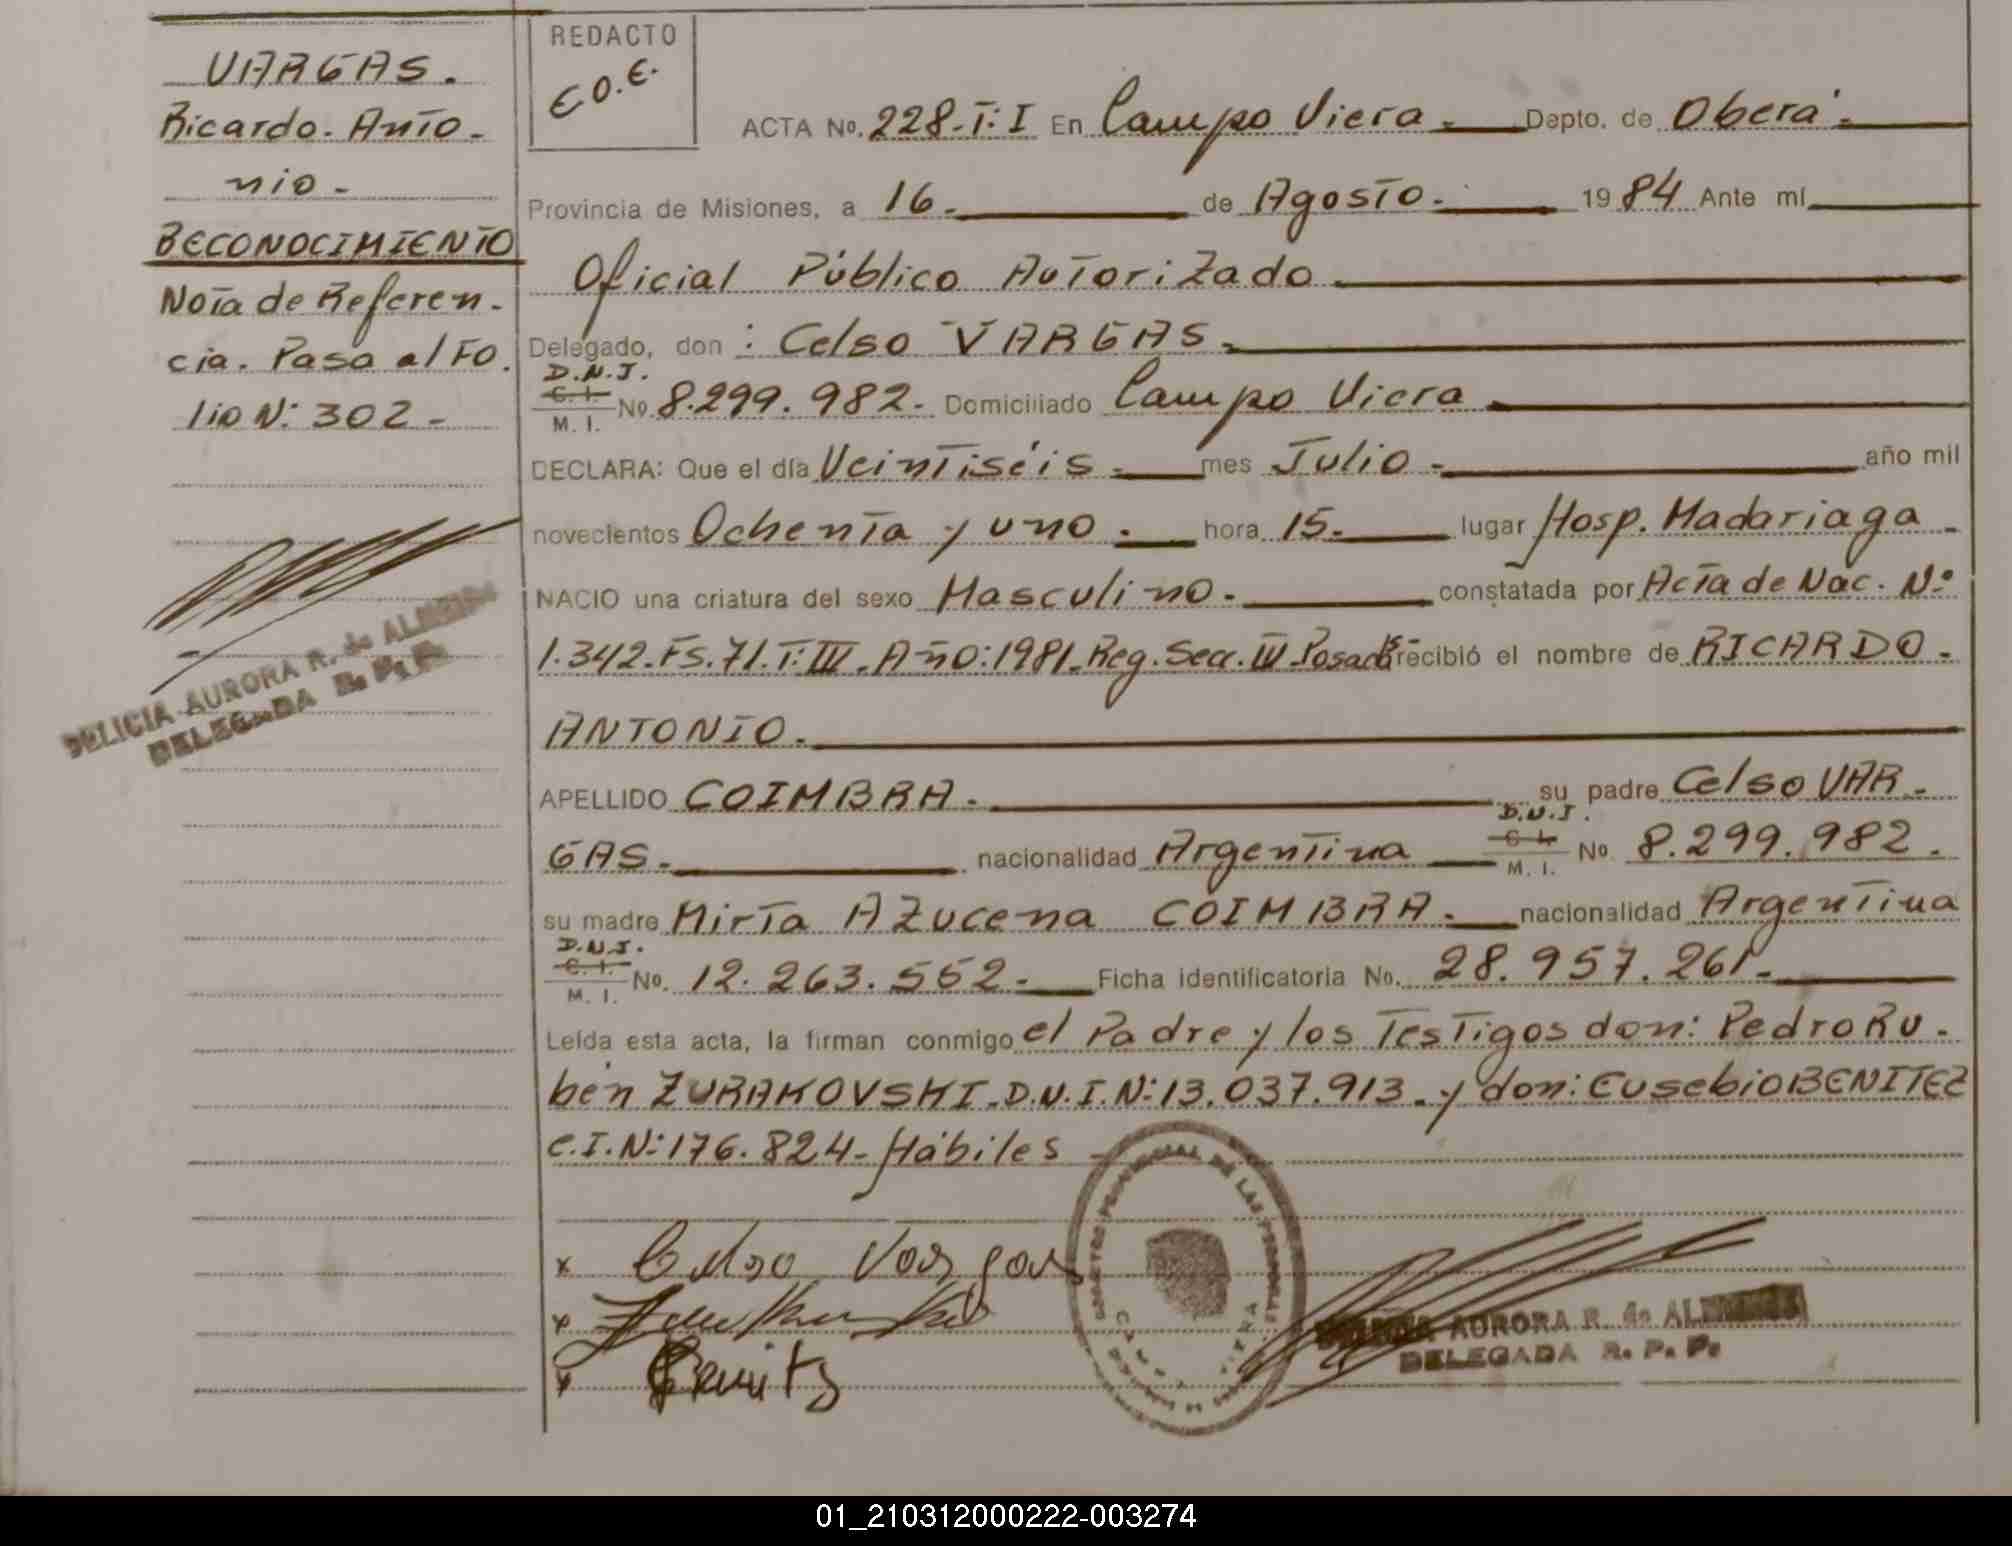 VARGAS.
Ricardo. Anto-
nio-
RECONOCIMIENTO
Nota de Referen-
cia. Pasa al Fo.
lio N: 302-
DELICIA AURORA R. de
DELEGADA R. P. P.
REDACTO
E.O.E.
ACTA No. 228-T:I En Campo Viera.- Depto. de Oberá.-
Provincia de Misiones, a 16.- de Agosto.- 1984 Ante mí
Oficial Público Autorizado
Delegado, don: Celso VARGAS.
D.N.I.
C.I.
M. I. No. 8.299.982.- Domiciliado Campo Viera
DECLARA: Que el día Veintiséis.- mes Julio.- año mil
novecientos Ochenta y uno.- hora 15.- lugar Hosp. Madariaga-
NACIO una criatura del sexo Masculino.- constatada por Acta de Nac. Nº
1.342.Fs.71.T:III.Año:1981.Reg.Secc.III Posadas recibió el nombre de RICARDO.
ANTONIO.
APELLIDO COIMBRA. su padre Celso VAR-
GAS.- nacionalidad Argentina D.N.I. C.I. M. I. No 8.299.982.
su madre Mirta AZucena COIMBRA.- nacionalidad Argentina
D.N.I.
C.I.
M. I. No. 12.263.552.- Ficha identificatoria No. 28.957.261.-
Leída esta acta, la firman conmigo el Padre y los Testigos don: Pedro Ru-
bén ZURAKOVSKI.D.N.I.N:13.037.913.y don: Eusebio BENITEZ
C.I.N:176.824-Hábiles
x Celso Vargas
x
x Benitz
AURORA R. de
DELEGADA R. P. P.
01_210312000222-003274